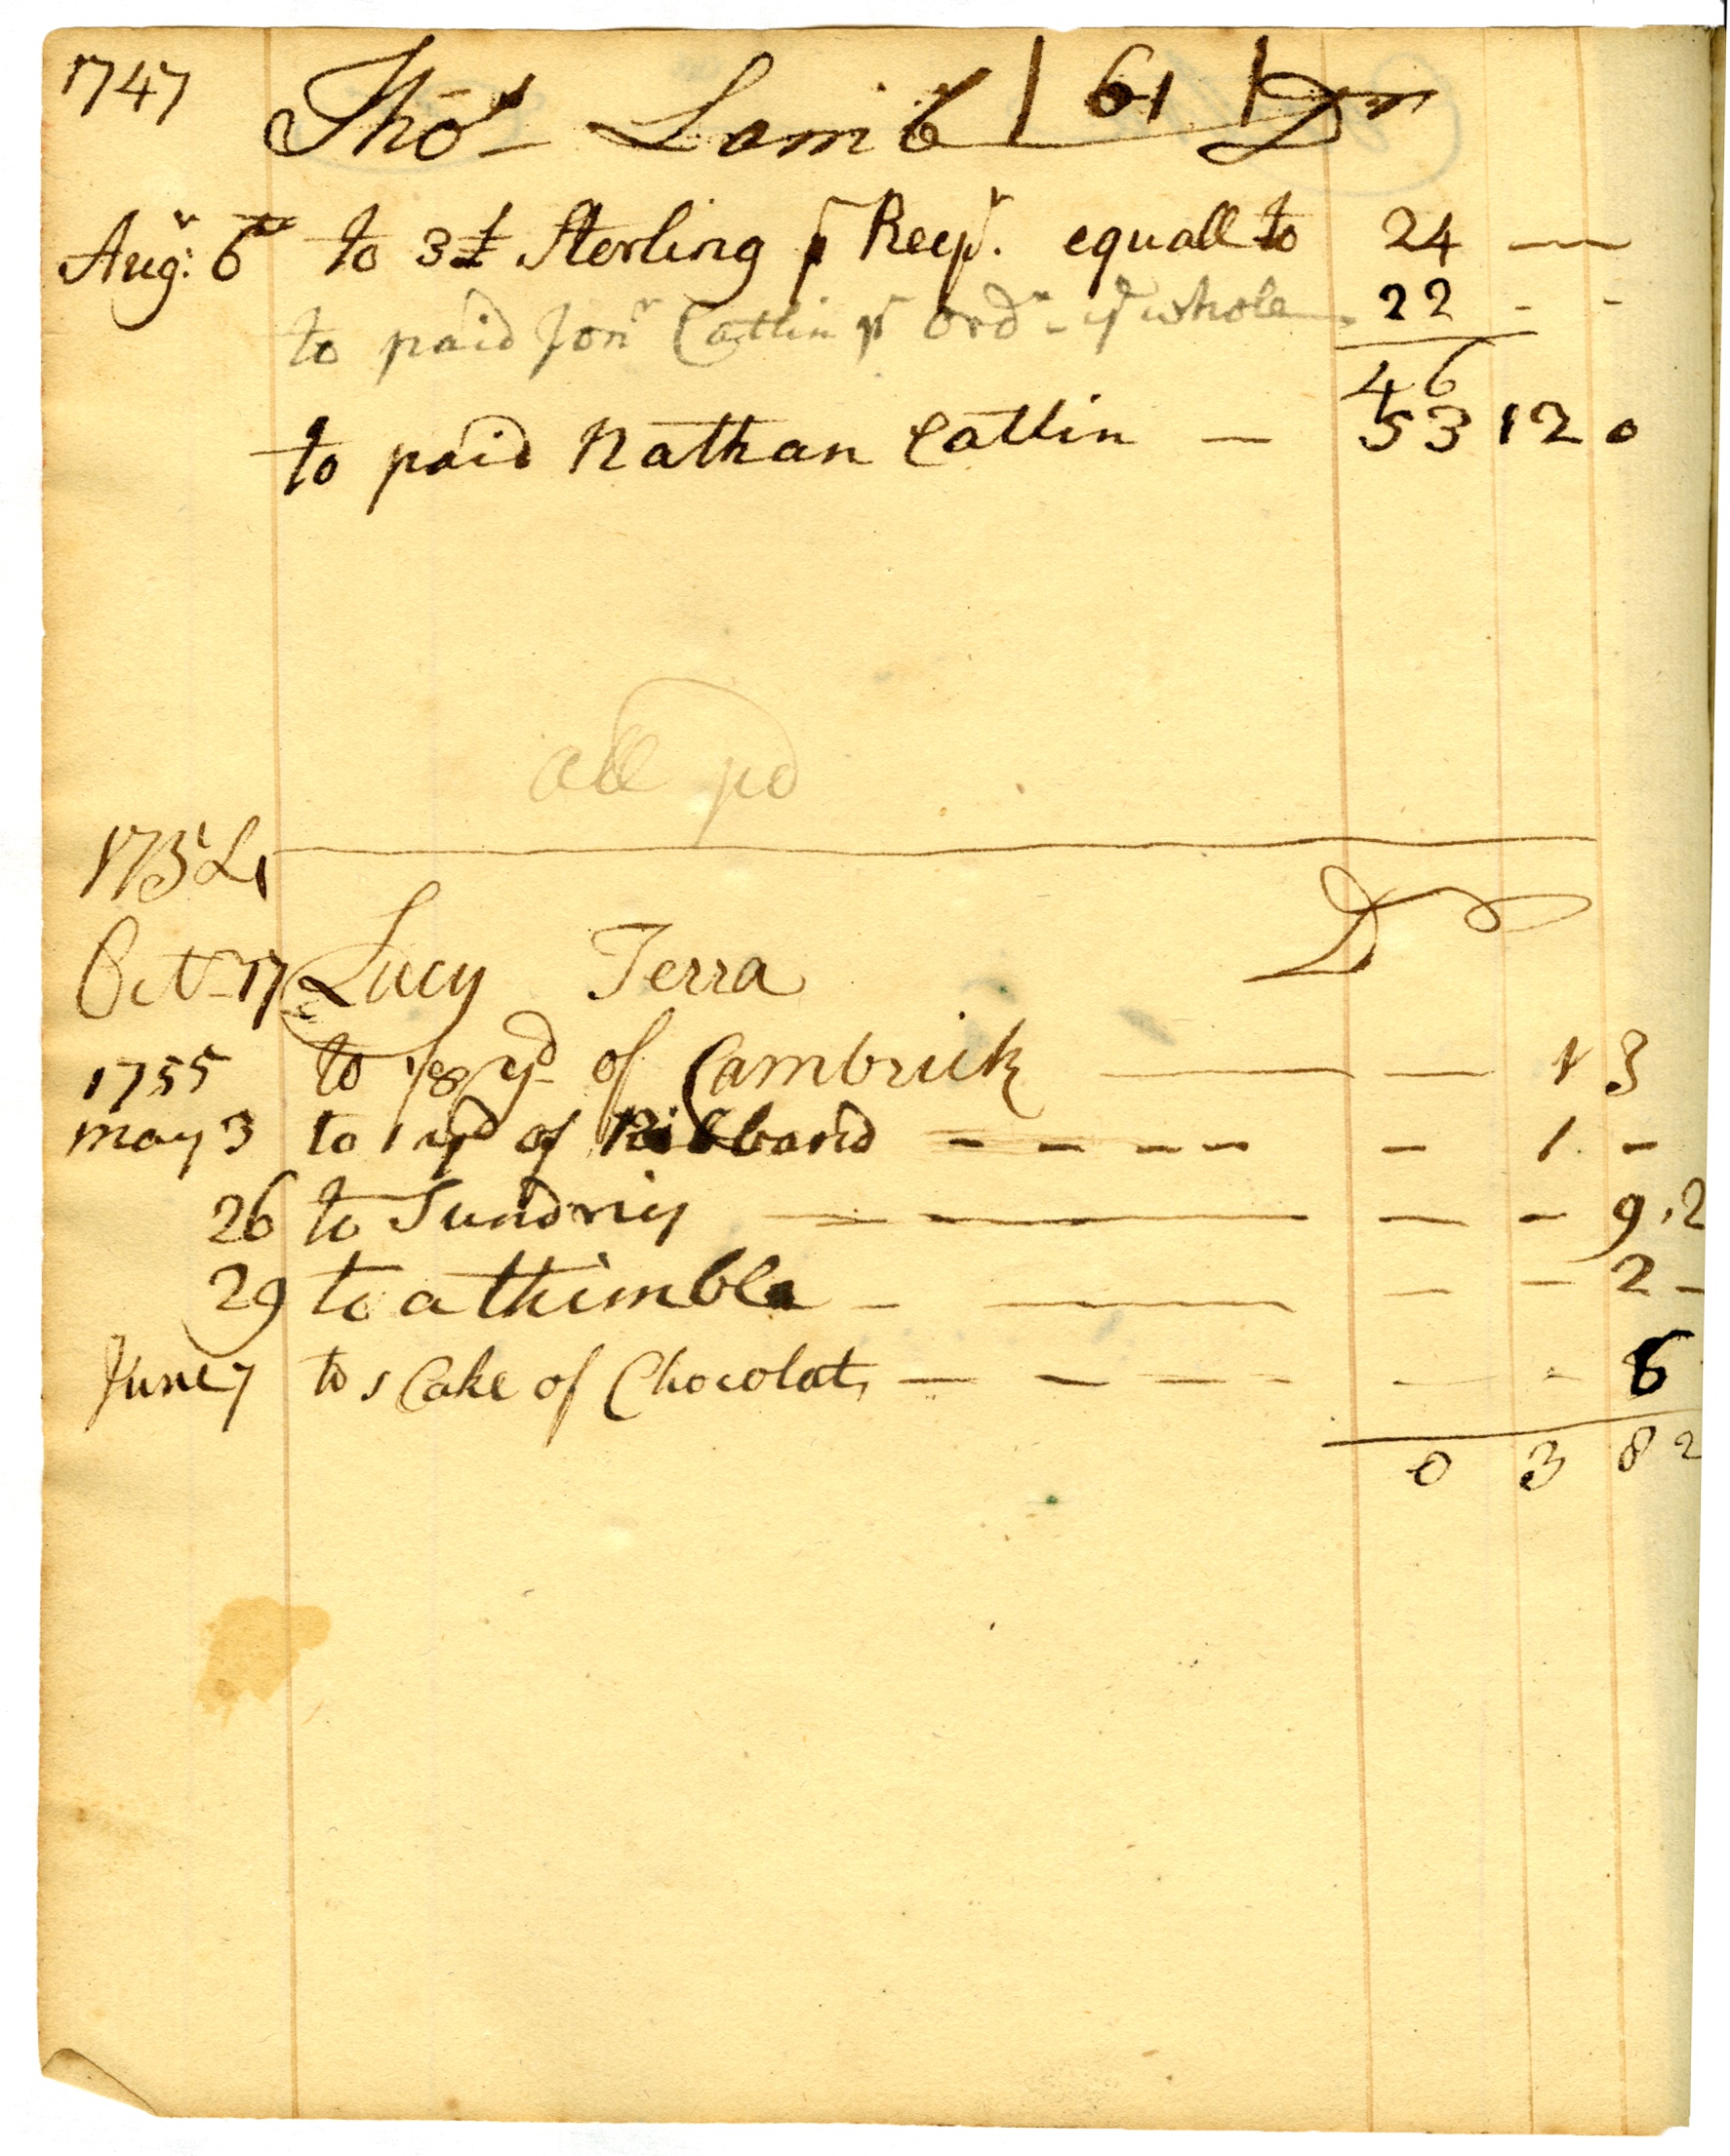 1747 Thos Lamb | 61 | Dr
Augr: 6th to 3£ Sterling pr Recpt. equall to 24 —
to paid Jonr Catlin pr Ordr - ye whole 22 - -
46
to paid Nathan Catlin — 53 12 0
all pd
1754
Octr 17 Lucy Terra Dr
to 1/8 yd of Cambrick — — 1 3
1755
may 3 to 1 yd of Ribband - - - - - 1. -
26 to Sundriy — — — - 9.2
29 to a thimble - — - - 2 -
June 7 to 1 Cake of Chocolat — — — - - - 6
0 3 8 2